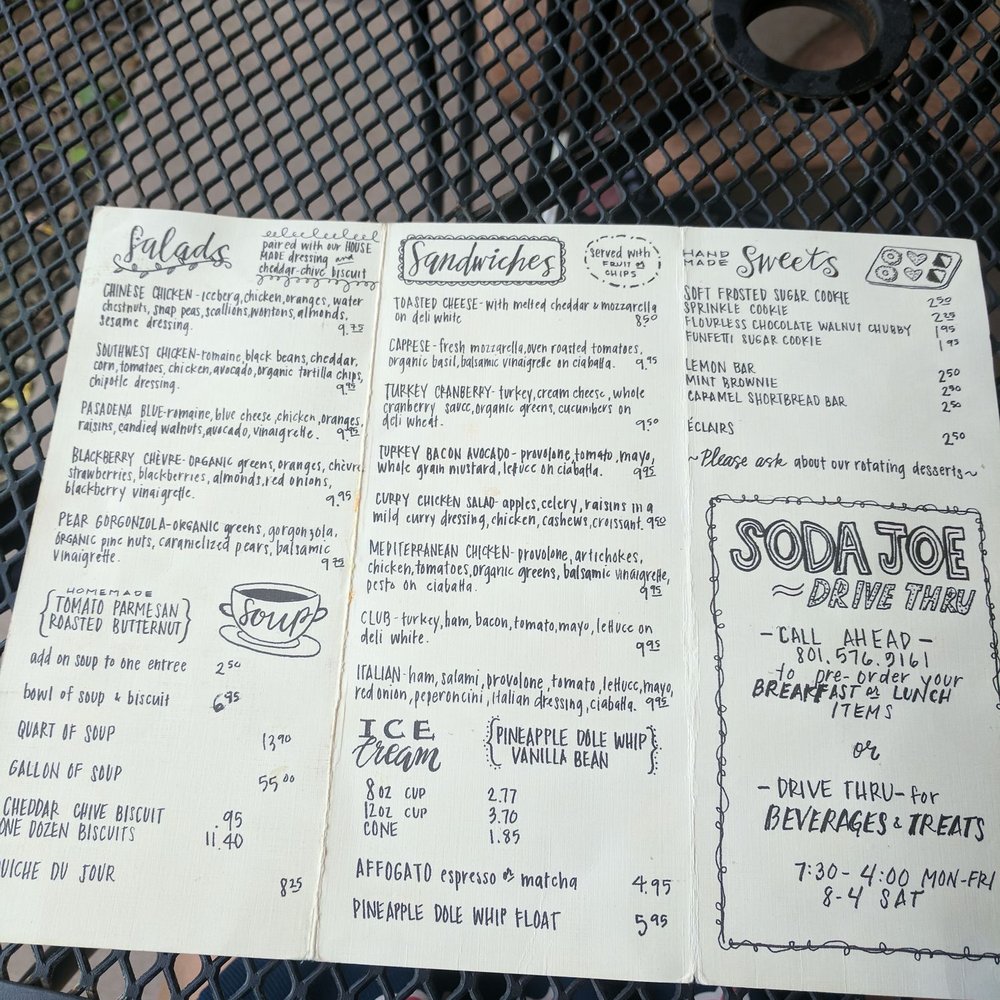 Salads
paired with our HOUSE
MADE dressing and
cheddar-chive biscuit
CHINESE CHICKEN - iceberg, chicken, oranges, water
chestnuts, snap peas, scallions, wontons, almonds,
sesame dressing. 9.75
SOUTHWEST CHICKEN - romaine, black beans, cheddar,
corn, tomatoes, chicken, avocado, organic tortilla chips,
chipotle dressing. 9.95
PASADENA BLUE - romaine, blue cheese, chicken, oranges,
raisins, candied walnuts, avocado, vinaigrette. 9.95
BLACKBERRY CHÈVRE - ORGANIC greens, oranges, chèvre,
strawberries, blackberries, almonds, red onions,
blackberry vinaigrette. 9.95
PEAR GORGONZOLA - ORGANIC greens, gorgonzola,
ORGANIC pine nuts, caramelized pears, balsamic
vinaigrette. 9.75
HOMEMADE
TOMATO PARMESAN
ROASTED BUTTERNUT
Soup
add on soup to one entree 2.50
bowl of soup & biscuit 6.95
QUART OF SOUP 13.90
GALLON OF SOUP 55.00
CHEDDAR CHIVE BISCUIT .95
ONE DOZEN BISCUITS 11.40
UICHE DU JOUR 8.25
Sandwiches
served with
FRUIT or
CHIPS
TOASTED CHEESE - with melted cheddar & mozzarella
on deli white 8.50
CAPRESE - fresh mozzarella, oven roasted tomatoes,
organic basil, balsamic vinaigrette on ciabatta. 9.95
TURKEY CRANBERRY - turkey, cream cheese, whole
cranberry sauce, organic greens, cucumbers on
deli wheat. 9.50
TURKEY BACON AVOCADO - provolone, tomato, mayo,
whole grain mustard, lettuce on ciabatta. 9.95
CURRY CHICKEN SALAD - apples, celery, raisins in a
mild curry dressing, chicken, cashews, croissant. 9.50
MEDITERRANEAN CHICKEN - provolone, artichokes,
chicken, tomatoes, organic greens, balsamic vinaigrette,
pesto on ciabatta. 9.95
CLUB - turkey, ham, bacon, tomato, mayo, lettuce on
deli white. 9.95
ITALIAN - ham, salami, provolone, tomato, lettuce, mayo,
red onion, peperoncini, italian dressing, ciabatta. 9.95
ICE
Cream
PINEAPPLE DOLE WHIP
VANILLA BEAN
8 OZ CUP 2.77
12 OZ CUP 3.70
CONE 1.85
AFFOGATO espresso or matcha 4.95
PINEAPPLE DOLE WHIP FLOAT 5.95
HAND
MADE
Sweets
SOFT FROSTED SUGAR COOKIE 2.50
SPRINKLE COOKIE 2.25
FLOURLESS CHOCOLATE WALNUT CHUBBY 1.95
FUNFETTI SUGAR COOKIE 1.95
LEMON BAR 2.50
MINT BROWNIE 2.90
CARAMEL SHORTBREAD BAR 2.50
ÉCLAIRS 2.50
~Please ask about our rotating desserts~
SODA JOE
DRIVE THRU
- CALL AHEAD -
801.576.9161
to pre-order your
BREAKFAST or LUNCH
ITEMS
or
- DRIVE THRU - for
BEVERAGES & TREATS
7:30 - 4:00 MON-FRI
8-4 SAT